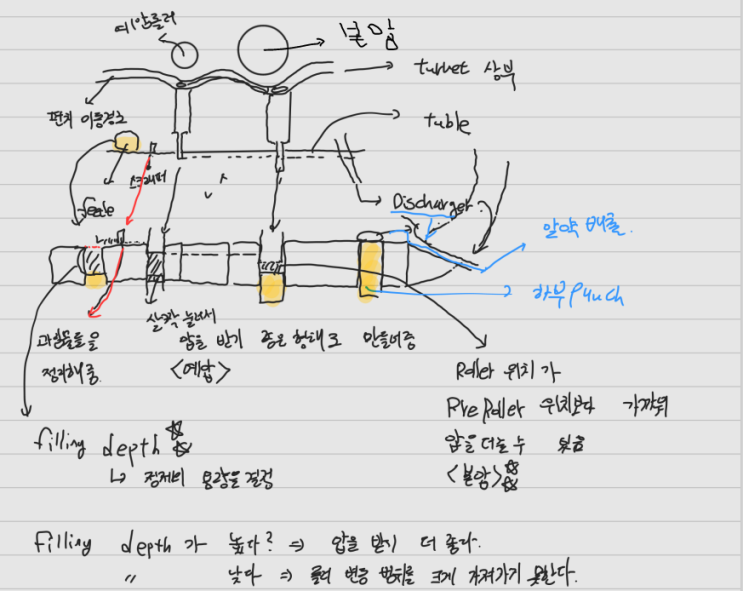 예압롤러
본압
turret 상부
펀치 이동경로
table
스크래퍼
feede
Discharger
알약 배출.
하부 Punch
과립물들을
정리해줌.
살짝 눌러서
압을 받기 좋은 형태로 만들어줌
<예압>
Roller 위치가
Pre Roller 위치보다 가까워
압을 더 줄 수 있음
<본압>
filling depth
↳ 정제의 용량을 결정
Filling depth 가 높다? ⇒ 압을 받기 더 좋다.
〃 낮다 ⇒ 롤러 변동 범위를 크게 가져가기 못한다.